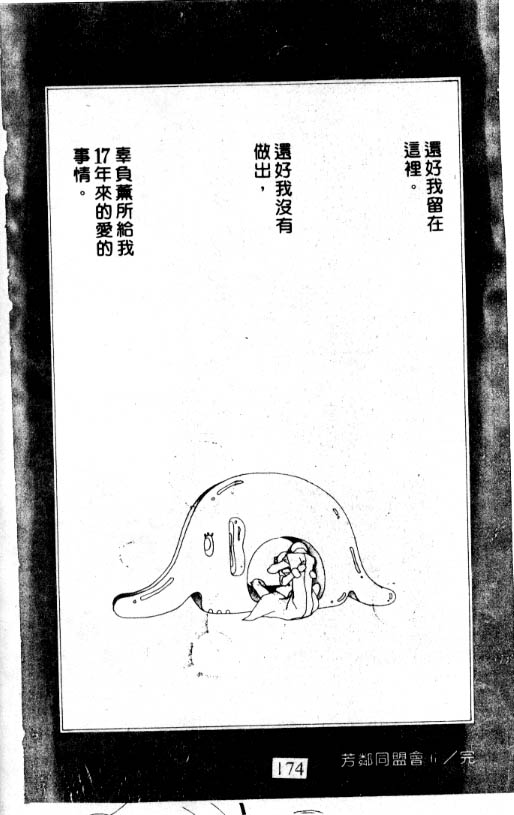 還好我留在
這裡。
還好我沒有
做出，
辜負薰所給我
17年來的愛的
事情。
174
芳鄰同盟會 ／完